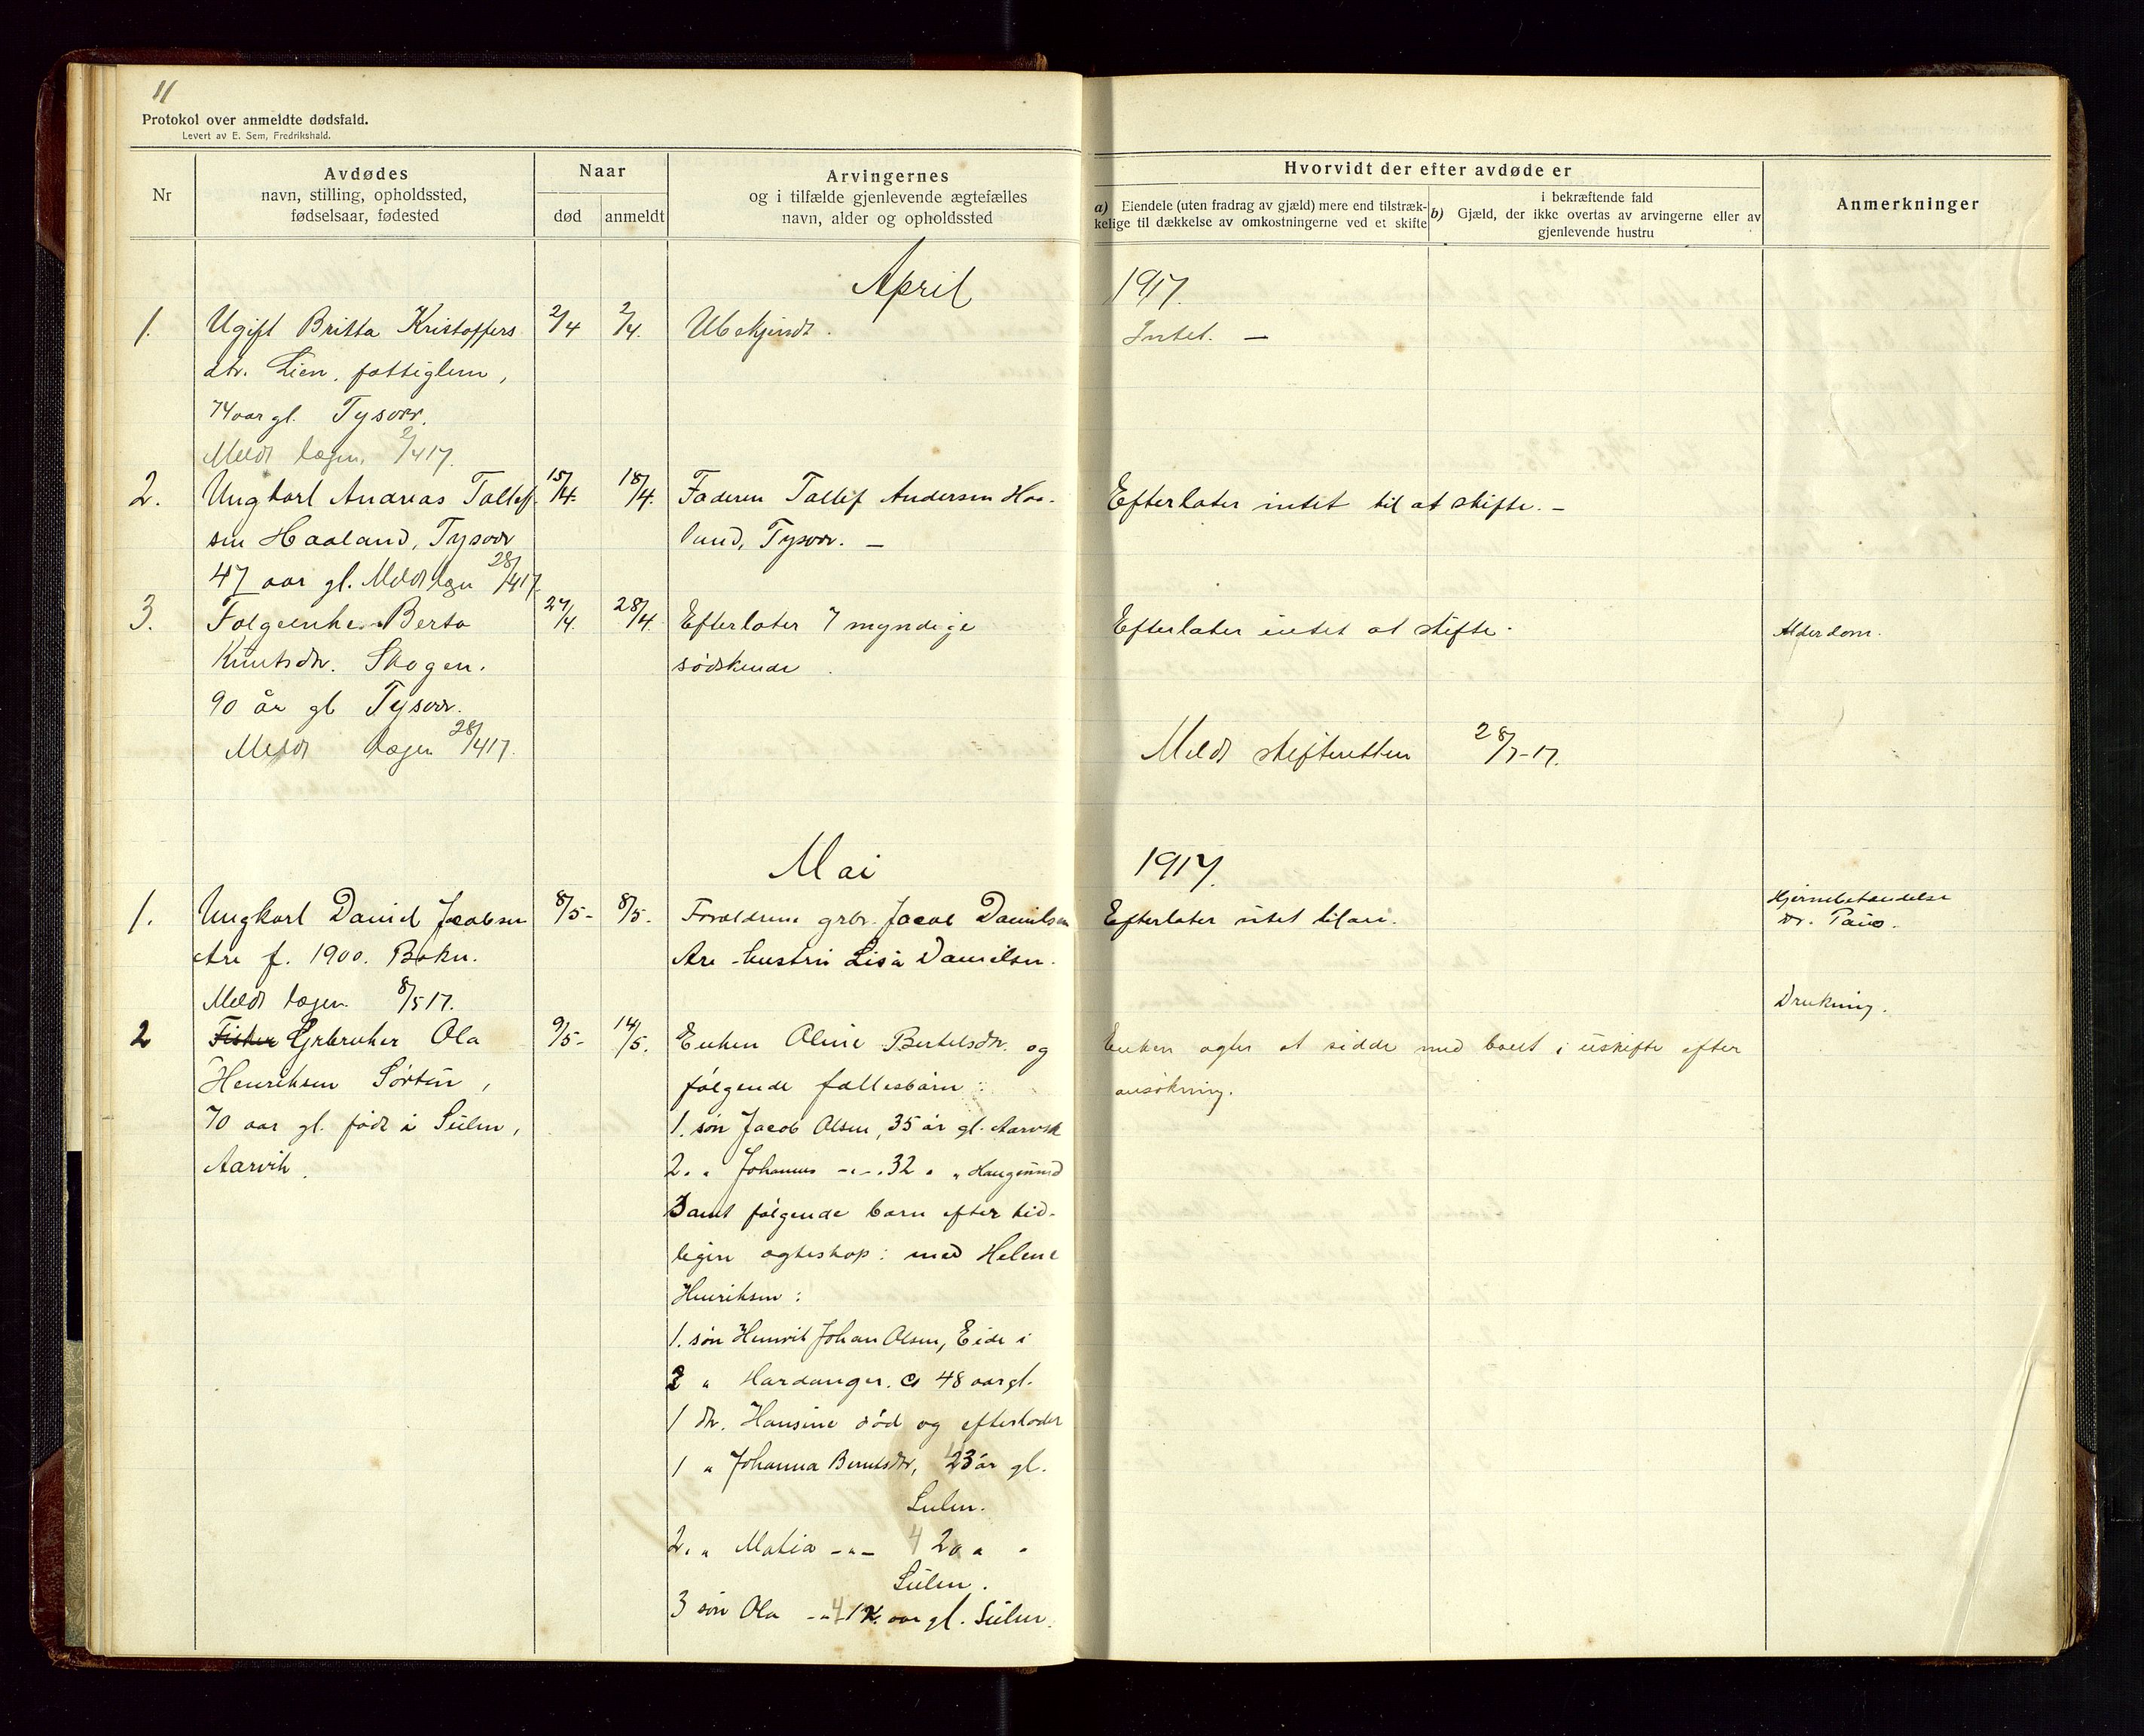 11
Protokol over anmeldte dødsfald.
Levert av E. Sem, Fredrikshald.
Nr
Avdødes
navn, stilling, opholdssted,
fødselsaar, fødested
Naar
død
anmeldt
Arvingernes
og i tilfælde gjenlevende ægtefælles
navn, alder og opholdssted
Hvorvidt der efter avdøde er
a) Eiendele (uten fradrag av gjæld) mere end tilstræk-
kelige til dækkelse av omkostningerne ved et skifte
i bekræftende fald
b) Gjæld, der ikke overtas av arvingerne eller av
gjenlevende hustru
Anmerkninger
April 1917.
1. Ugift Britta Kristoffers 2/4 2/4. Ubekjendt. Intet. —
dtr. Lien, fattiglem,
74 aar gl. Tysvær.
Meldt lægen, 2/4 17.
2. Ungkarl Andreas Tollef 15/4. 18/4. Faderen Tollef Andersen Haa- Efterlater intet til at skifte. —
sen Haaland, Tysvær land, Tysvær. —
47 aar gl. Meldt lægen 28/4 17.
3. Berta 27/4. 28/4. Efterlater 7 myndige Efterlater intet at skifte. Alderdom.
Knutsdtr. Skogen. sødskende.
90 år gl Tysvær.
Meldt lægen 28/4 17. Meldt skifteretten 28/7-17.
Mai 1917.
1. Ungkarl Daniel Jacobsen 8/5- 8/5. Forældrene grbr. Jacob Danielsen Efterlater intet til arv. Hjernebetændelse
Dr.
Are f. 1900. Bokn. Are hustru Lisa Danielsen.
Meldt lægen 8/5 17. Drukning.
2 Fisker Grbruker Ola 9/5- 14/5. Enken Oline Bertelsdtr. og Enken agter at sidde med boet i uskifte efter
Henriksen Sørtun, følgende fællesbarn: ansøkning.
70 aar gl. født i Sulen, 1. søn Jacob Olsen, 35 år gl. Aarvik
Aarvik. 2. " Johannes -"- 32 " " Haugesund
Samt følgende barn efter tid-
ligere egteskap: med Helene
Henriksen:
1. søn Henrik Johan Olsen, Eide i
2 " Hardanger. ca 48 aar gl.
1 dtr. Hansine død og efterlader
1 " Johanna Berntsdtr, 23 år gl.
Sulen.
2. " Matia -"- 20 " "
Sulen.
3 søn Ola -"- aar gl. Sulen.